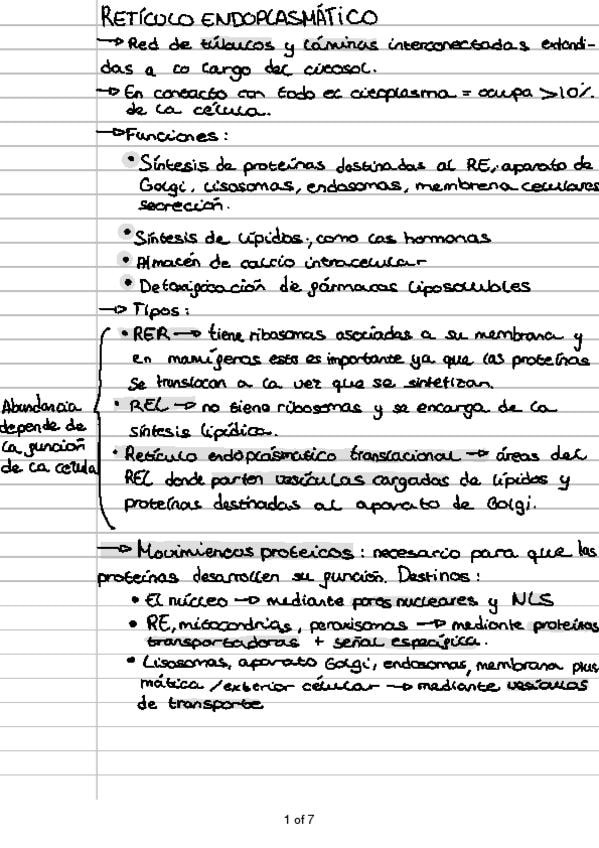 RETÍCULO ENDOPLASMÁTICO
→ Red de túbulos y láminas interconectadas extendi-
das a lo largo del citosol.
→ En contacto con todo el citoplasma = ocupa >10%
de la célula.
→ Funciones:
• Síntesis de proteínas destinadas al RE, aparato de
Golgi, lisosomas, endosomas, membrana celular
secreción.
• Síntesis de lípidos, como las hormonas
• Almacén de calcio intracelular
• Detoxificación de fármacos liposolubles
→ Tipos:
• RER → tiene ribosomas asociados a su membrana y
en mamíferos esto es importante ya que las proteínas
se translocan a la vez que se sintetizan.
• REL → no tiene ribosomas y se encarga de la
síntesis lipídica.
• Retículo endoplásmatico translacional → áreas del
REL donde parten vesículas cargadas de lípidos y
proteínas destinadas al aparato de Golgi.
Abundancia
depende de
la función
de la célula
→ Movimientos proteicos: necesario para que las
proteínas desarrollen su función. Destinos:
• El núcleo → mediante poros nucleares y NLS
• RE, mitocondrias, peroxisomas → mediante proteínas
transportadoras + señal específica.
• Lisosomas, aparato Golgi, endosomas, membrana plas
mática / exterior célular → mediante vesículas
de transporte
1 of 7